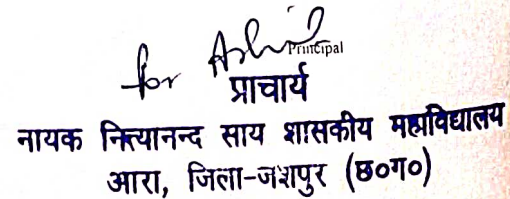 for Principal
प्राचार्य
नायक नित्यानन्द साय शासकीय महाविद्यालय
आरा, जिला-जशपुर (छ०ग०)